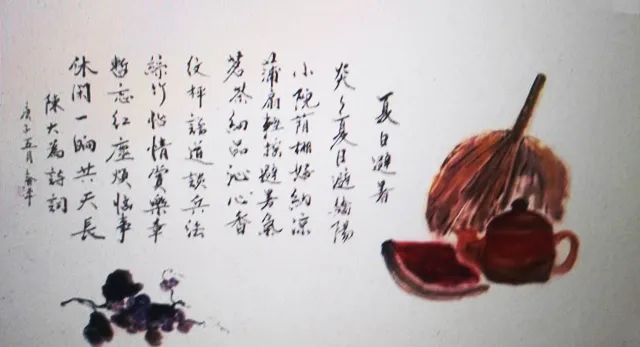 夏日避暑
炎々夏日避骄陽
小院荫棚好納凉
蒲扇輕摇暑氣
茗茶细品沁心香
纹枰論道談兵法
絲竹怡情賞樂章
暫忘红塵烦恼事
休闲一晌共天長
陳大為詩詞
庚子五月